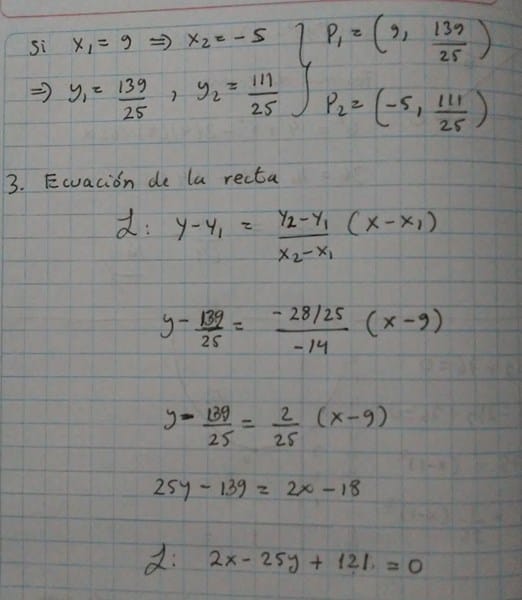 Si x₁ = 9 ⇒ x₂ = -5 } P₁ = (9, 139/25)
⇒ y₁ = 139/25 , y₂ = 111/25 } P₂ = (-5, 111/25)
3. Ecuación de la recta
L: y - y₁ = (y₂ - y₁)/(x₂ - x₁) (x - x₁)
y - 139/25 = (-28/25)/(-14) (x - 9)
y - 139/25 = 2/25 (x - 9)
25y - 139 = 2x - 18
L: 2x - 25y + 121 = 0